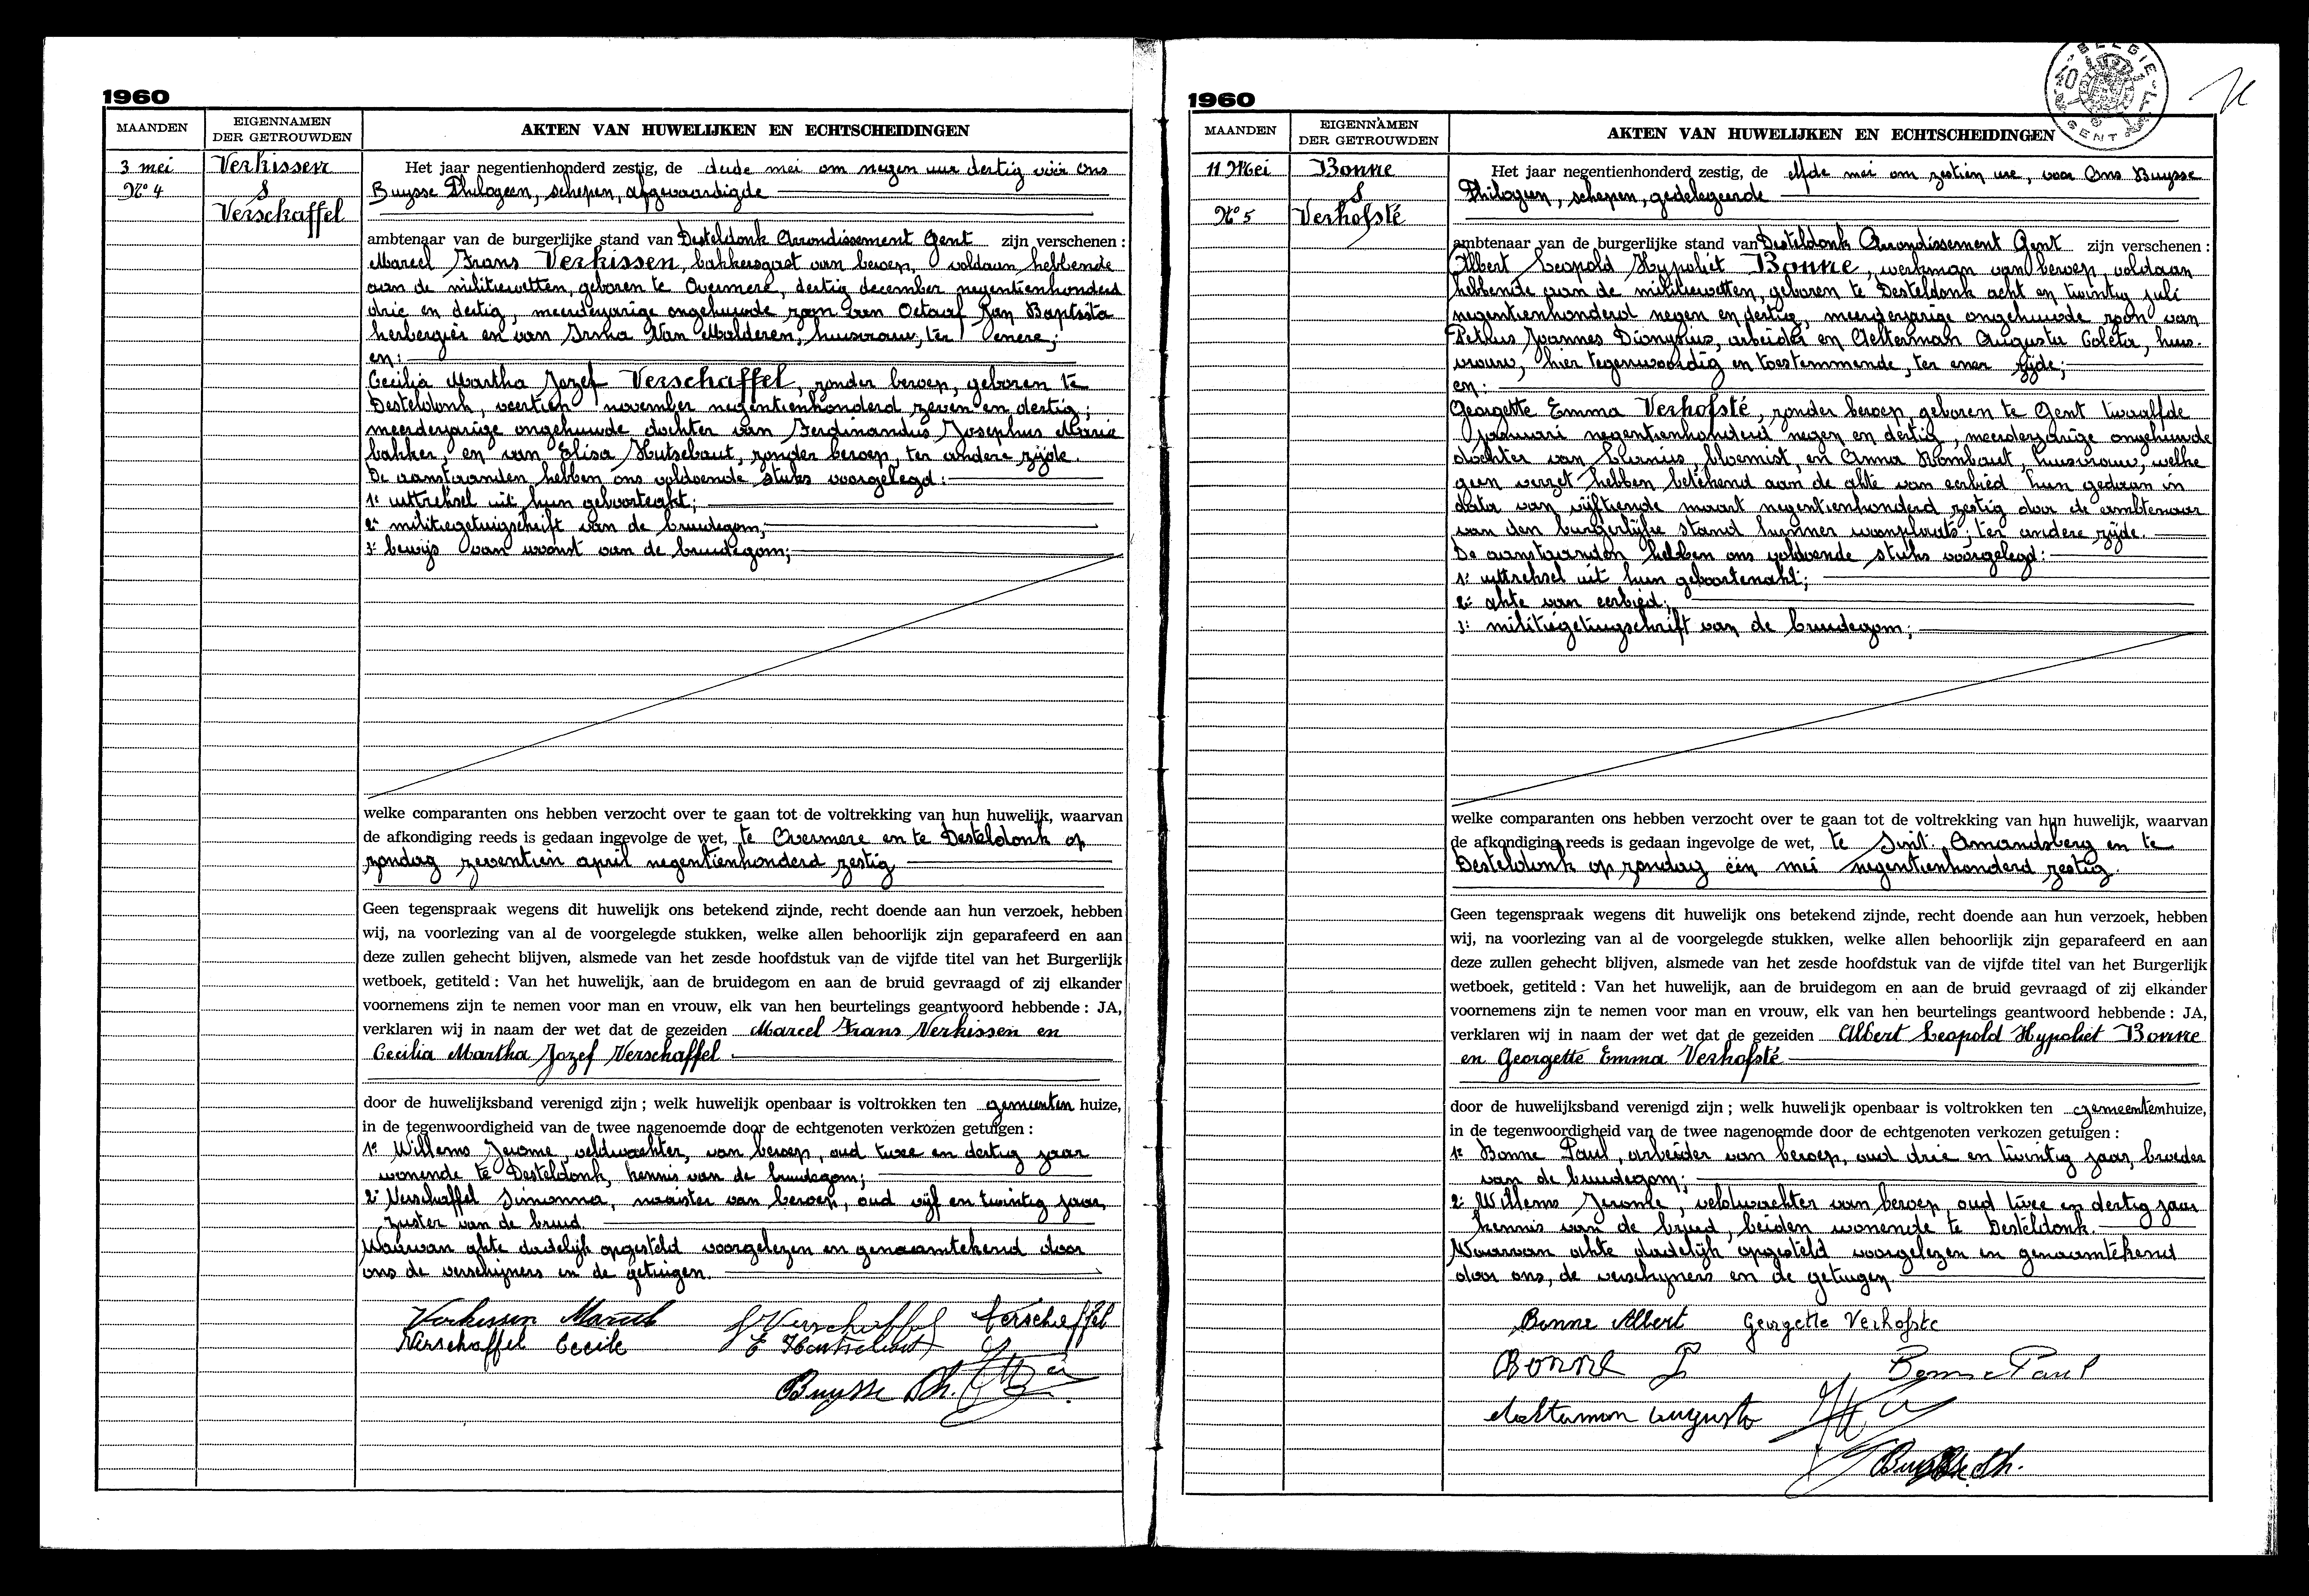 1960
MAANDEN
EIGENNAMEN
DER GETROUWDEN
AKTEN VAN HUWELIJKEN EN ECHTSCHEIDINGEN
3 mei
Nº 4
Verkissen
&
Verschaffel
Het jaar negentienhonderd zestig, de derde mei om negen uur dertig vóór Ons
Buysse Philogeen, schepen, afgevaardigde
ambtenaar van de burgerlijke stand van Desteldonk Arrondissement Gent zijn verschenen :
Marcel Frans Verkissen, bakkersgast van beroep, voldaan hebbende
aan de militiewetten, geboren te Overmere, dertig december negentienhonderd
drie en dertig, meerderjarige ongehuwde zoon van Octaaf Jan Baptista
herbergier en van Irma Van Malderen, huisvrouw, ter enere;
en:
Cecilia Martha Jozef Verschaffel, zonder beroep, geboren te
Desteldonk, veertien november negentienhonderd zeven en dertig;
meerderjarige ongehuwde dochter van Ferdinandus Josephus Marie
bakker, en van Elisa Hutsebaut, zonder beroep, ter andere zijde.
De aanstaanden hebben ons voldoende stuks voorgelegd:
1º uittreksel uit hun geboorteakt;
2º militiegetuigschrift van de bruidegom;
3º bewijs van woonst van de bruidegom;
welke comparanten ons hebben verzocht over te gaan tot de voltrekking van hun huwelijk, waarvan
de afkondiging reeds is gedaan ingevolge de wet, te Overmere en te Desteldonk op
zondag zeventien april negentienhonderd zestig
Geen tegenspraak wegens dit huwelijk ons betekend zijnde, recht doende aan hun verzoek, hebben
wij, na voorlezing van al de voorgelegde stukken, welke allen behoorlijk zijn geparafeerd en aan
deze zullen gehecht blijven, alsmede van het zesde hoofdstuk van de vijfde titel van het Burgerlijk
wetboek, getiteld : Van het huwelijk, aan de bruidegom en aan de bruid gevraagd of zij elkander
voornemens zijn te nemen voor man en vrouw, elk van hen beurtelings geantwoord hebbende : JA,
verklaren wij in naam der wet dat de gezeiden Marcel Frans Verkissen en
Cecilia Martha Jozef Verschaffel.
door de huwelijksband verenigd zijn ; welk huwelijk openbaar is voltrokken ten gemeenten huize,
in de tegenwoordigheid van de twee nagenoemde door de echtgenoten verkozen getuigen :
1º Willems Jerome, veldwachter, van beroep, oud twee en dertig jaar
wonende te Desteldonk, kennis van de bruidegom;
2º Verschaffel Simonna, naaister van beroep, oud vijf en twintig jaar,
zuster van de bruid.
Waarvan akte dadelijk opgesteld voorgelezen en genaamtekend door
ons de verschijners en de getuigen.
Verkissen Marcel Verschaffel Verschaffel
Verschaffel Cecile E Hutsebaut
Buysse Ph.
1960
BELGIE
GENT
MAANDEN
EIGENNAMEN
DER GETROUWDEN
AKTEN VAN HUWELIJKEN EN ECHTSCHEIDINGEN
11 Mei
Nº 5
Bonne
&
Verhofsté
Het jaar negentienhonderd zestig, de elfde mei om zestien ure, voor Ons Buysse
Philogeen, schepen, gedelegeerde
ambtenaar van de burgerlijke stand van Desteldonk Arrondissement Gent zijn verschenen :
Albert Leopold Hypoliet Bonne, werkman van beroep, voldaan
hebbende aan de militiewetten, geboren te Desteldonk acht en twintig juli
negentienhonderd negen en dertig, meerderjarige ongehuwde zoon van
Petrus Joannes Dionysius, arbeider en Aelterman Augusta Coleta, huis-
vrouw, hier tegenwoordig en toestemmende, ter ener zijde;
en:
Georgette Emma Verhofsté, zonder beroep, geboren te Gent twaalfde
januari negentienhonderd negen en dertig, meerderjarige ongehuwde
dochter van bloemist, en Anna Rombaut, huisvrouw, welke
geen verzet hebben betekend aan de akte van eerbied hun gedaan in
data van vijftiende maart negentienhonderd zestig door de ambtenaar
van den burgerlijke stand hunner woonplaats; ter andere zijde.
De aanstaanden hebben ons voldoende stuks voorgelegd:
1º uittreksel uit hun geboortenakt;
2º akte van eerbied;
3º militiegetuigschrift van de bruidegom;
welke comparanten ons hebben verzocht over te gaan tot de voltrekking van hun huwelijk, waarvan
de afkondiging reeds is gedaan ingevolge de wet, te Sint. Amandsberg en te
Desteldonk op zondag één mei negentienhonderd zestig.
Geen tegenspraak wegens dit huwelijk ons betekend zijnde, recht doende aan hun verzoek, hebben
wij, na voorlezing van al de voorgelegde stukken, welke allen behoorlijk zijn geparafeerd en aan
deze zullen gehecht blijven, alsmede van het zesde hoofdstuk van de vijfde titel van het Burgerlijk
wetboek, getiteld : Van het huwelijk, aan de bruidegom en aan de bruid gevraagd of zij elkander
voornemens zijn te nemen voor man en vrouw, elk van hen beurtelings geantwoord hebbende : JA,
verklaren wij in naam der wet dat de gezeiden Albert Leopold Hypoliet Bonne
en Georgette Emma Verhofsté
door de huwelijksband verenigd zijn ; welk huwelijk openbaar is voltrokken ten gemeentenhuize,
in de tegenwoordigheid van de twee nagenoemde door de echtgenoten verkozen getuigen :
1º Bonne Paul, arbeider van beroep, oud drie en twintig jaar, broeder
van de bruidegom;
2º Willems Jerome, veldwachter van beroep oud twee en dertig jaar
kennis van de bruid, beiden wonende te Desteldonk.
Waarvan akte dadelijk opgesteld voorgelezen en genaamtekend
door ons, de verschijners en de getuigen.
Bonne Albert Georgette Verhofste
Bonne P Bonne Paul
Aelterman Augusta
Buysse Ph.